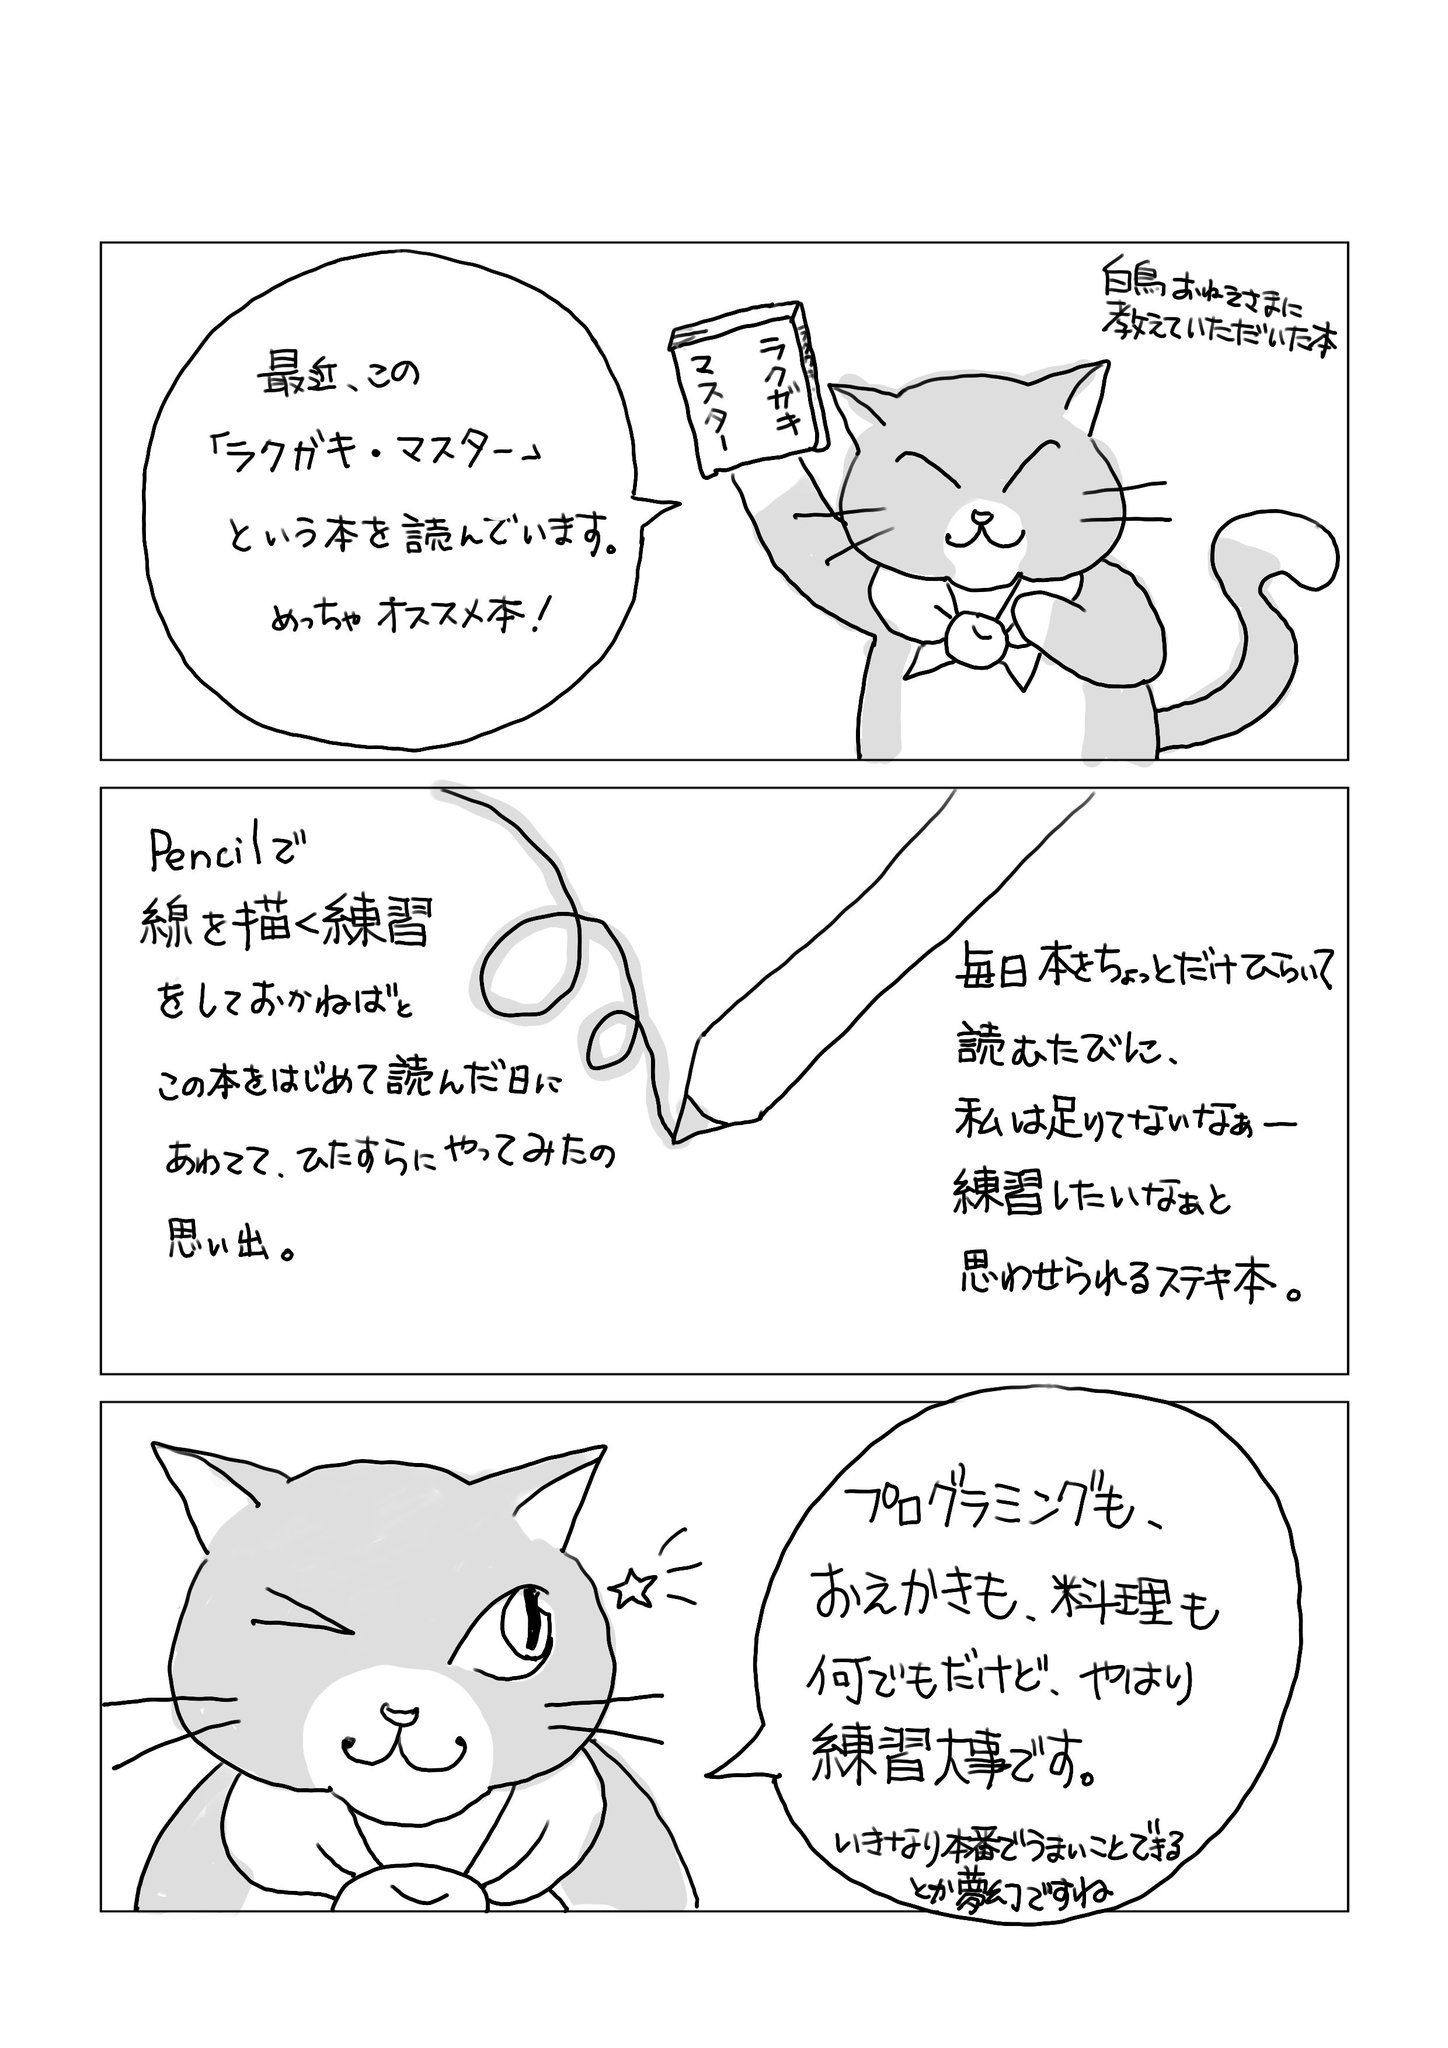 最近、この
「ラクガキ・マスター」
という本を読んでいます。
めっちゃオススメ本！
ラクガキ
マスター
白鳥おねえさまに
教えていただいた本
Pencilで
線を描く練習
をしておかねばと
この本をはじめて読んだ日に
あわてて、ひたすらにやってみたの
思い出。
毎日本をちょっとだけひらいて
読むたびに、
私は足りてないなぁー
練習したいなぁと
思わせられるステキ本。
プログラミングも、
おえかきも、料理も
何でもだけど、やはり
練習大事です。
いきなり本番でうまいことできる
とか夢幻ですね